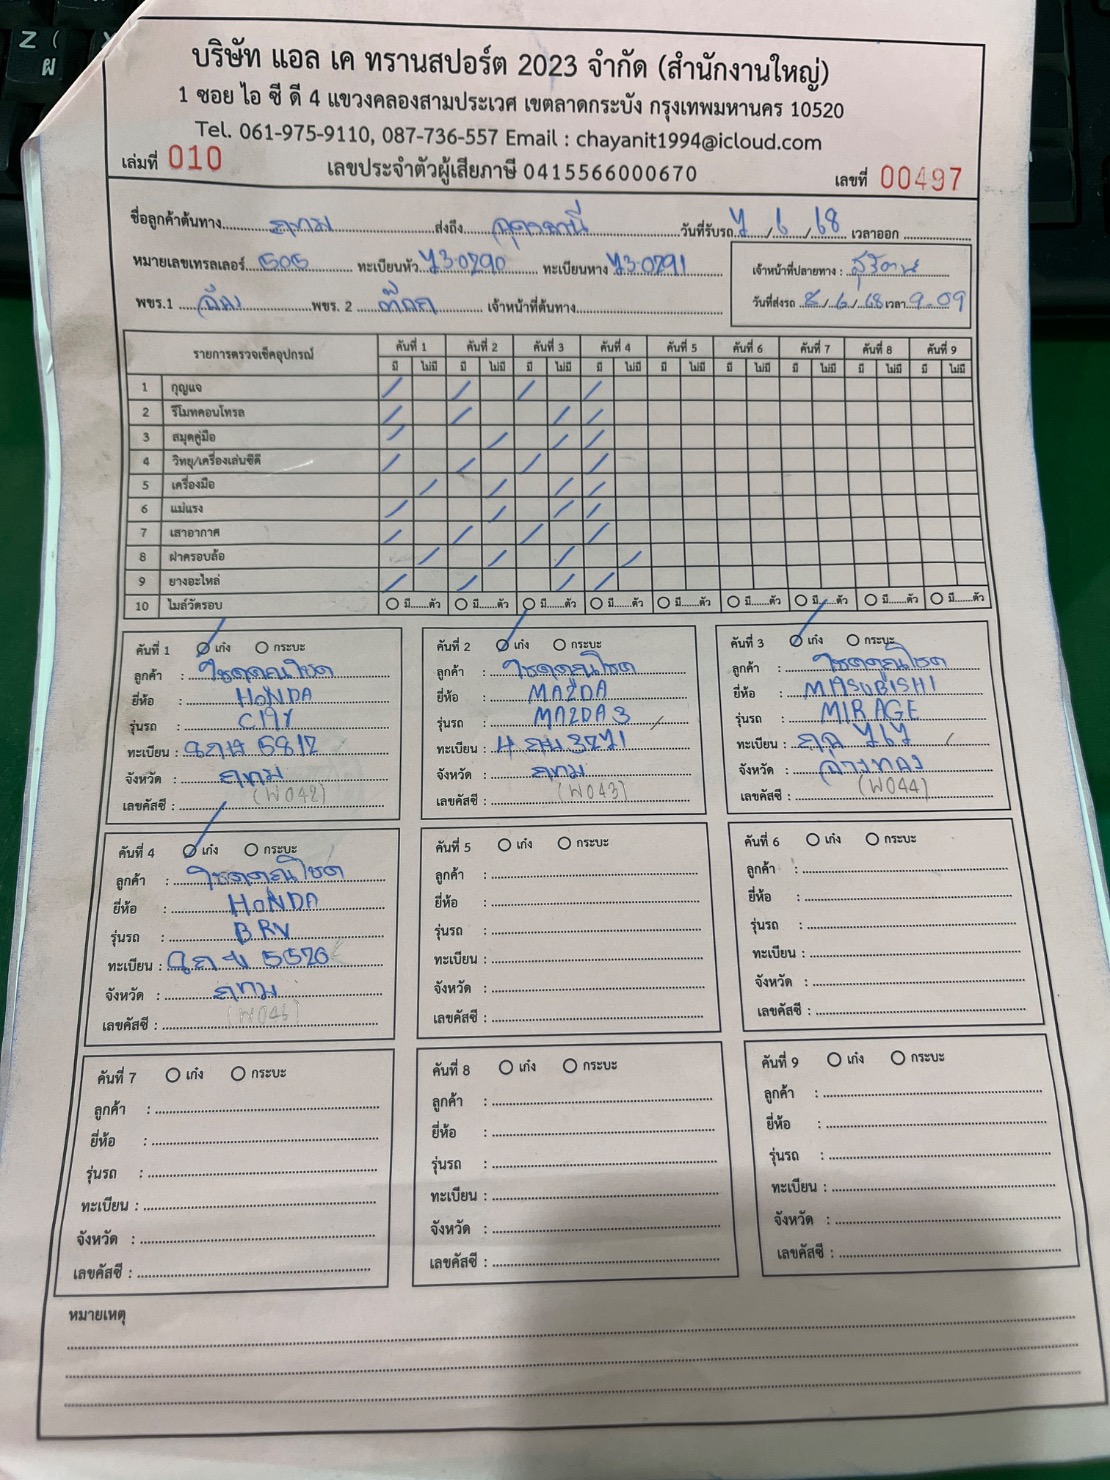 บริษัท แอล เค ทรานสปอร์ต 2023 จำกัด (สำนักงานใหญ่)
1 ซอย ไอ ซี ดี 4 แขวงคลองสามประเวศ เขตลาดกระบัง กรุงเทพมหานคร 10520
Tel. 061-975-9110, 087-736-557 Email : chayanit1994@icloud.com
เล่มที่ 010 เลขประจำตัวผู้เสียภาษี 0415566000670 เลขที่ 00497
ชื่อลูกค้าต้นทาง กทม ส่งถึง อุดรธานี วันที่รับรถ 7/6/68 เวลาออก
หมายเลขเทรลเลอร์ 505 ทะเบียนหัว 73-0290 ทะเบียนหาง 73-0291 เจ้าหน้าที่ปลายทาง :
พขร.1 พขร. 2 เจ้าหน้าที่ต้นทาง วันที่ส่งรถ 8/6/68 เวลา 9.09
รายการตรวจเช็คอุปกรณ์ คันที่ 1 คันที่ 2 คันที่ 3 คันที่ 4 คันที่ 5 คันที่ 6 คันที่ 7 คันที่ 8 คันที่ 9
มี ไม่มี มี ไม่มี มี ไม่มี มี ไม่มี มี ไม่มี มี ไม่มี มี ไม่มี มี ไม่มี มี ไม่มี
1 กุญแจ
2 รีโมทคอนโทรล
3 สมุดคู่มือ
4 วิทยุ/เครื่องเล่นซีดี
5 เครื่องมือ
6 แม่แรง
7 เสาอากาศ
8 ฝาครอบล้อ
9 ยางอะไหล่
10 ไมล์วัดรอบ มี......ตัว มี......ตัว มี......ตัว มี......ตัว มี......ตัว มี......ตัว มี......ตัว มี......ตัว มี......ตัว
คันที่ 1 เก๋ง กระบะ
ลูกค้า :
ยี่ห้อ : HONDA
รุ่นรถ : CITY
ทะเบียน : 5812
จังหวัด : กทม
เลขคัสซี : (W042)
คันที่ 2 เก๋ง กระบะ
ลูกค้า :
ยี่ห้อ : MAZDA
รุ่นรถ : MAZDA 3
ทะเบียน : 3271
จังหวัด : กทม
เลขคัสซี : (W043)
คันที่ 3 เก๋ง กระบะ
ลูกค้า :
ยี่ห้อ : MITSUBISHI
รุ่นรถ : MIRAGE
ทะเบียน :
จังหวัด : อ่างทอง
เลขคัสซี : (W044)
คันที่ 4 เก๋ง กระบะ
ลูกค้า :
ยี่ห้อ : HONDA
รุ่นรถ : BRV
ทะเบียน : 5526
จังหวัด : กทม
เลขคัสซี :
คันที่ 5 เก๋ง กระบะ
ลูกค้า :
ยี่ห้อ :
รุ่นรถ :
ทะเบียน :
จังหวัด :
เลขคัสซี :
คันที่ 6 เก๋ง กระบะ
ลูกค้า :
ยี่ห้อ :
รุ่นรถ :
ทะเบียน :
จังหวัด :
เลขคัสซี :
คันที่ 7 เก๋ง กระบะ
ลูกค้า :
ยี่ห้อ :
รุ่นรถ :
ทะเบียน :
จังหวัด :
เลขคัสซี :
คันที่ 8 เก๋ง กระบะ
ลูกค้า :
ยี่ห้อ :
รุ่นรถ :
ทะเบียน :
จังหวัด :
เลขคัสซี :
คันที่ 9 เก๋ง กระบะ
ลูกค้า :
ยี่ห้อ :
รุ่นรถ :
ทะเบียน :
จังหวัด :
เลขคัสซี :
หมายเหตุ